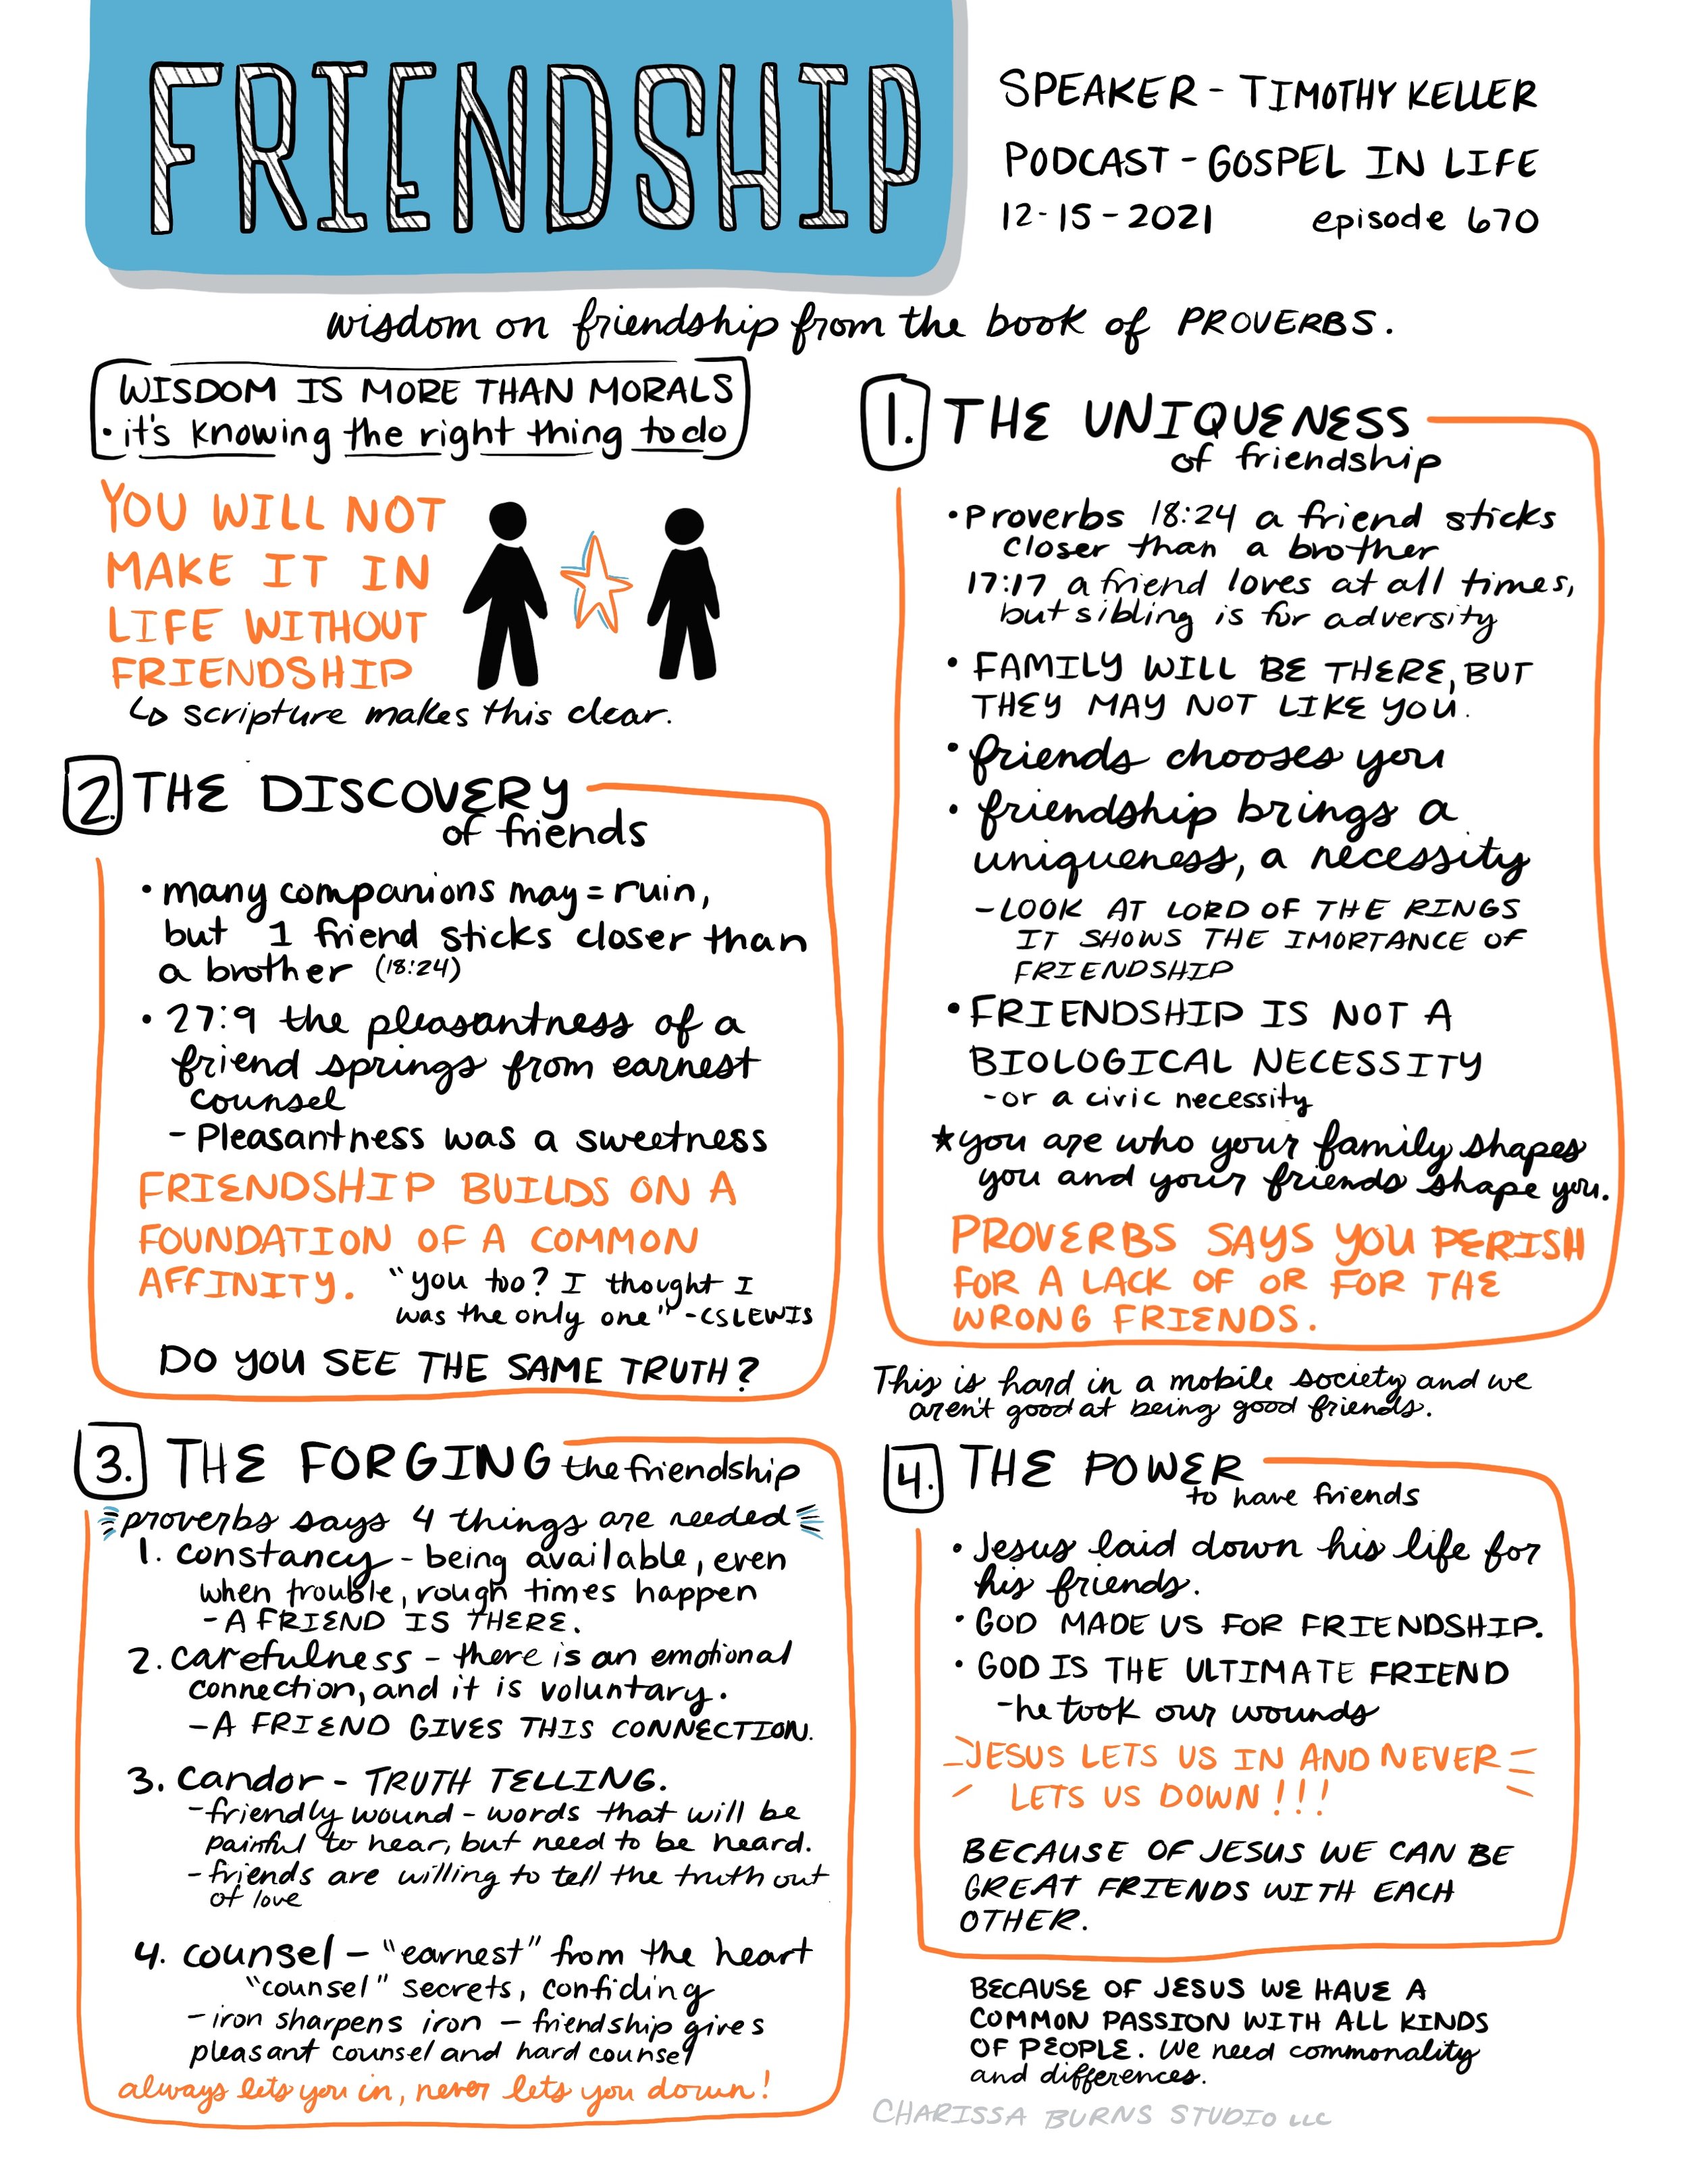 FRIENDSHIP
SPEAKER - TIMOTHY KELLER
PODCAST - GOSPEL IN LIFE
12-15-2021 episode 670
wisdom on friendship from the book of PROVERBS.
WISDOM IS MORE THAN MORALS
• it's knowing the right thing to do
YOU WILL NOT
MAKE IT IN
LIFE WITHOUT
FRIENDSHIP
↳ scripture makes this clear.
1. THE UNIQUENESS
of friendship
• Proverbs 18:24 a friend sticks
closer than a brother
17:17 a friend loves at all times,
but sibling is for adversity
• FAMILY WILL BE THERE, BUT
THEY MAY NOT LIKE YOU.
• friends chooses you
• friendship brings a
uniqueness, a necessity
- LOOK AT LORD OF THE RINGS
IT SHOWS THE IMORTANCE OF
FRIENDSHIP
• FRIENDSHIP IS NOT A
BIOLOGICAL NECESSITY
- or a civic necessity
* you are who your family shapes
you and your friends shape you.
PROVERBS SAYS YOU PERISH
FOR A LACK OF OR FOR THE
WRONG FRIENDS.
This is hard in a mobile society and we
aren't good at being good friends.
2. THE DISCOVERY
of friends
• many companions may = ruin,
but 1 friend sticks closer than
a brother (18:24)
• 27:9 the pleasantness of a
friend springs from earnest
counsel
- Pleasantness was a sweetness
FRIENDSHIP BUILDS ON A
FOUNDATION OF A COMMON
AFFINITY. "you too? I thought I
was the only one" - CS LEWIS
DO YOU SEE THE SAME TRUTH?
3. THE FORGING the friendship
proverbs says 4 things are needed
1. constancy - being available, even
when trouble, rough times happen
- A FRIEND IS THERE.
2. carefulness - there is an emotional
connection, and it is voluntary.
- A FRIEND GIVES THIS CONNECTION.
3. candor - TRUTH TELLING.
- friendly wound - words that will be
painful to hear, but need to be heard.
- friends are willing to tell the truth out
of love
4. counsel - "earnest" from the heart
"counsel" secrets, confiding
- iron sharpens iron - friendship gives
pleasant counsel and hard counsel
always lets you in, never lets you down!
4. THE POWER
to have friends
• Jesus laid down his life for
his friends.
• GOD MADE US FOR FRIENDSHIP.
• GOD IS THE ULTIMATE FRIEND
- he took our wounds
JESUS LETS US IN AND NEVER
LETS US DOWN!!!
BECAUSE OF JESUS WE CAN BE
GREAT FRIENDS WITH EACH
OTHER.
BECAUSE OF JESUS WE HAVE A
COMMON PASSION WITH ALL KINDS
OF PEOPLE. We need commonality
and differences.
CHARISSA BURNS STUDIO LLC